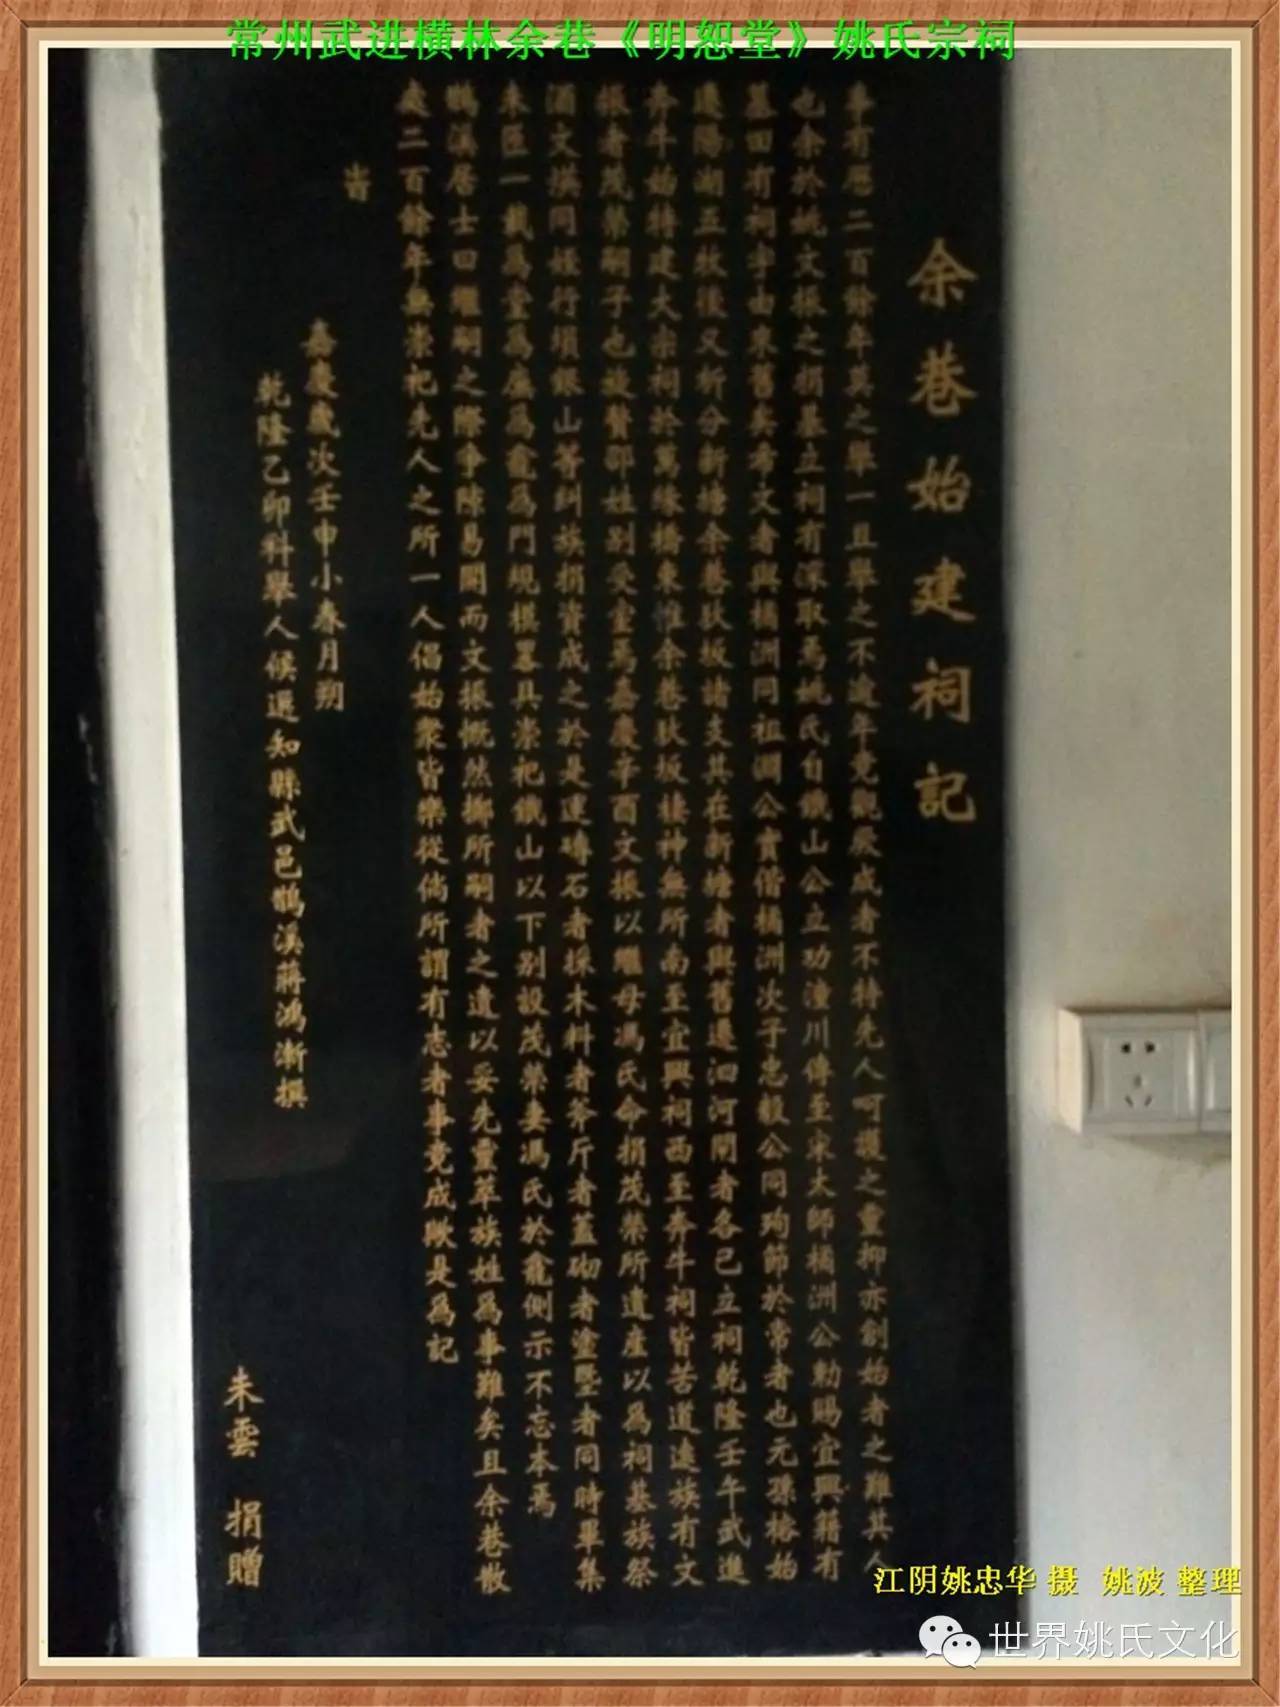 常州武进横林余巷《明恕堂》姚氏宗祠
余巷始建祠記
事有歷二百餘年莫之舉一旦舉之不逾年竟觀厥成者不特先人呵護之靈抑亦創始者之難其人
也余於姚文振之捐基立祠有深取焉姚氏自鐵山公立功潼川傳至宋太師橘洲公勅賜宜興籍有
墓田有祠宇由來舊矣考文者與橘洲同祖潤公實偕橘洲次子忠毅公同殉節於常者也元孫榕始
遷陽湖五牧後又析分新塘余巷狄坂諸支其在新塘者與舊遷洄河閘者各已立祠乾隆壬午武進
奔牛始特建大宗祠於萬緣橋東惟余巷狄坂棲神無所南至宜興祠西至奔牛祠皆苦道遠族有文
振者茂榮嗣子也旋贅邵姓別受室焉嘉慶辛酉文振以繼母馮氏命捐茂榮所遺產以為祠基族祭
酒文模同姪行塤銀山等糾族捐資成之於是運磚石者採木料者斧斤者蓋砌者塗墍者同時畢集
未匝一載為堂為廡為龕為門規模畧具崇祀鐵山以下別設茂榮妻馮氏於龕側示不忘本焉
鶴溪居士曰繼嗣之際爭隙易開而文振慨然擲所嗣者之遺以妥先靈萃族姓為事難矣且余巷散
處二百餘年無崇祀先人之所一人倡始衆皆樂從倘所謂有志者事竟成歟是為記
旹
嘉慶歲次壬申小春月朔
乾隆乙卯科舉人候選知縣武邑鶴溪蔣鴻漸撰
朱雲 捐贈
江阴姚忠华 摄 姚波 整理
世界姚氏文化